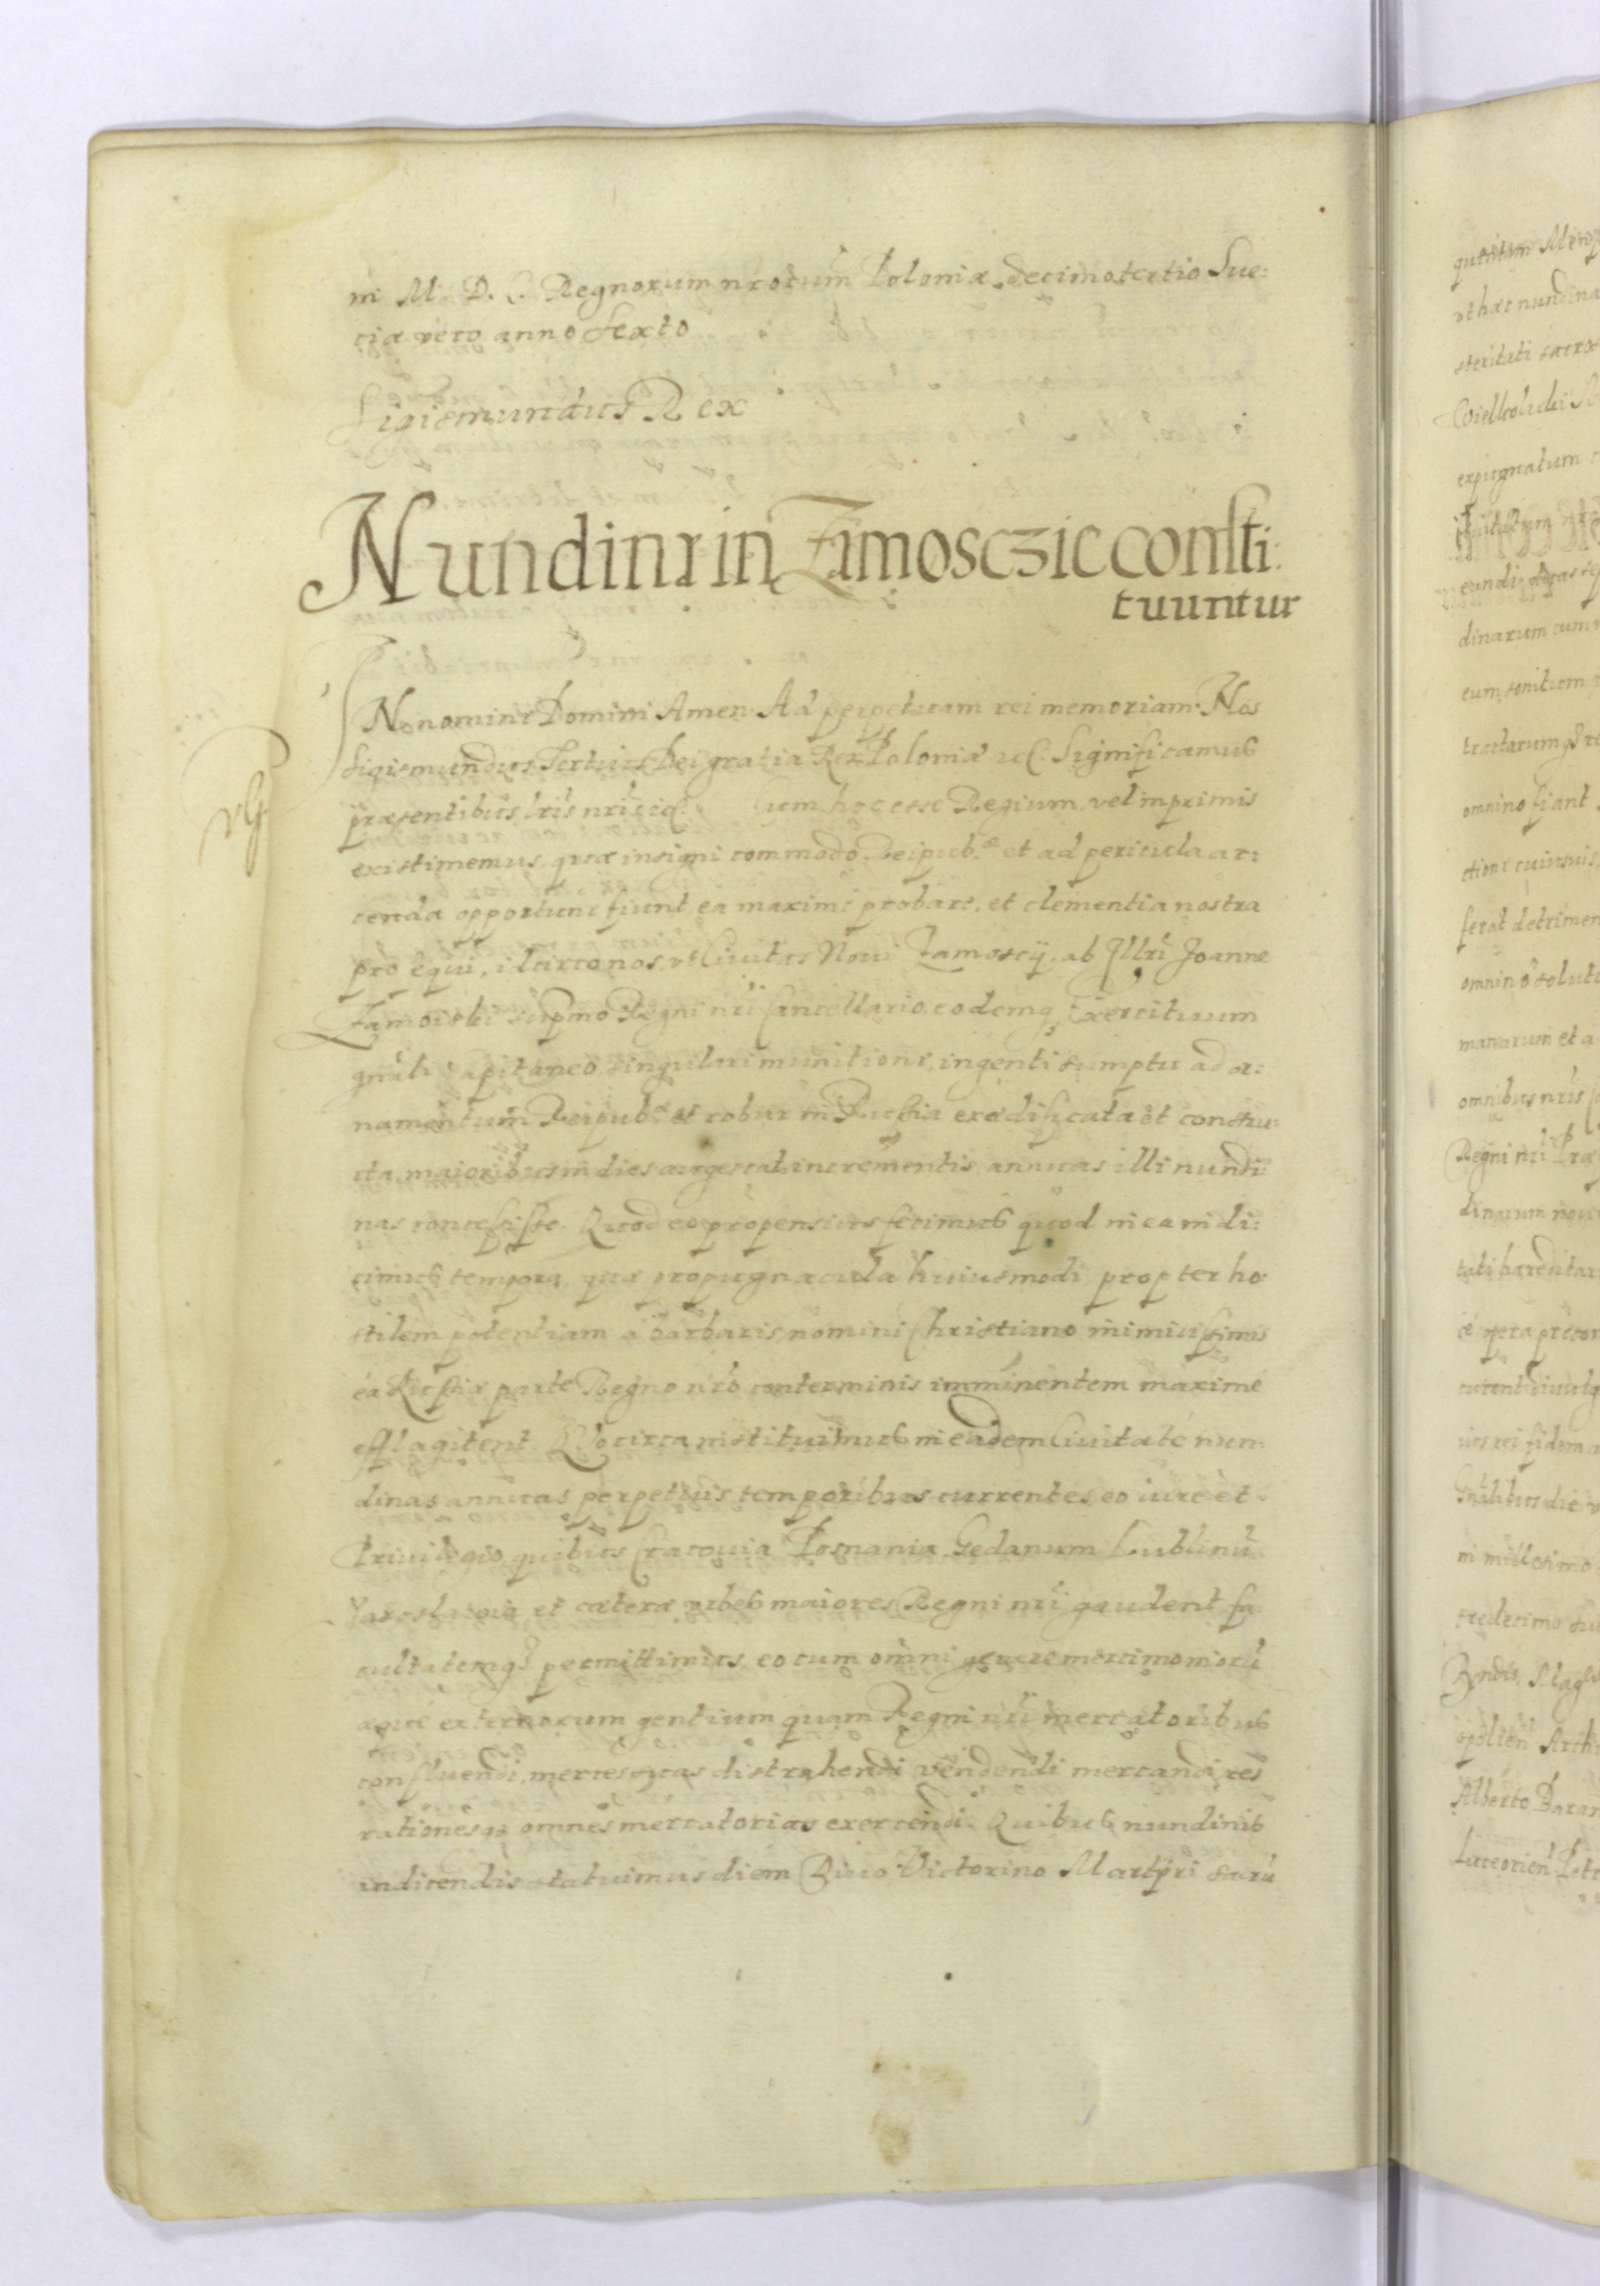 ni M. D. C. Regnorum nrorum Poloniæ decimotertio Sue:
ciæ vero anno sexto
Sigismundus Rex
Nundinæ in Zamosczie consti:
tuuntur
IN nomine Domini Amen. Ad perpetuam rei memoriam. Nos
Sigismundus Tertius Dei gratia Rex Poloniæ Significamus
præsentibus lris nris Cum hoc esse Regium vel inprimis
existimemus, quæ insigni commodo Reipub. et ad pericula ar:
cenda opportune fiunt ea maxime probare, et clementia nostra
pro equi, idcirco nos, vt Ciuitas Noui Zamoscij ab Illri Joanne
Zamoiski supmo Regni nri Cancellario, eodemq Exercituum
gnali Capitaneo singulari munitione, ingenti sumptu ad or:
namentum Reipub. et robur in Russia exædificata et constru:
cta, maioribus in dies augescat incrementis annuas illi nundi
nas concessisse. Quod eo propensius fecimus quod in ea indi:
cimus tempora, quæ propugnacula huiusmodi propter ho
stilem potentiam a barbaris nomini Christiano inimicissimis
ea Russiæ parte Regno nro conterminis imminentem maxime
efflagitent. Quocirca instituimus in eadem Ciuitate nun
dinas annuas perpetuis temporibus currentes eo iure et
Priuilegio, quibus Cracouia Posnania Gedanum Lublinu
Jaroslauia et cæteræ vrbes maiores Regni nri gaudent fa
cultatemq permittimus, eo cum omni genere mercimonioru
aque externorum gentium quam Regni nri mercatoribus
confluendi, merces suas distrahendi vendendi mercandi, res
rationesq omnes mercatorias exercendi. Quibus nundinis
indicendis statuimus diem Diuo Victorino Martyri sacru
quintam
ot hæc nundina
steritati sacræ
expugnatum
dinarum cum
omnino fiant
ctione cuiusuis
ferat detrimen
manarum et a
omnibus nris
Regni nri Præ
tati hæreditar
ius rei fidem
ni millesimo
Alberto Baran